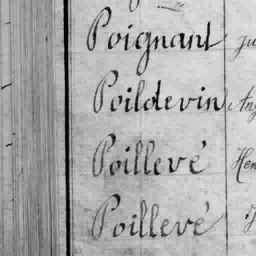 Poignant
Poildevin
Poillevé
Poillevé